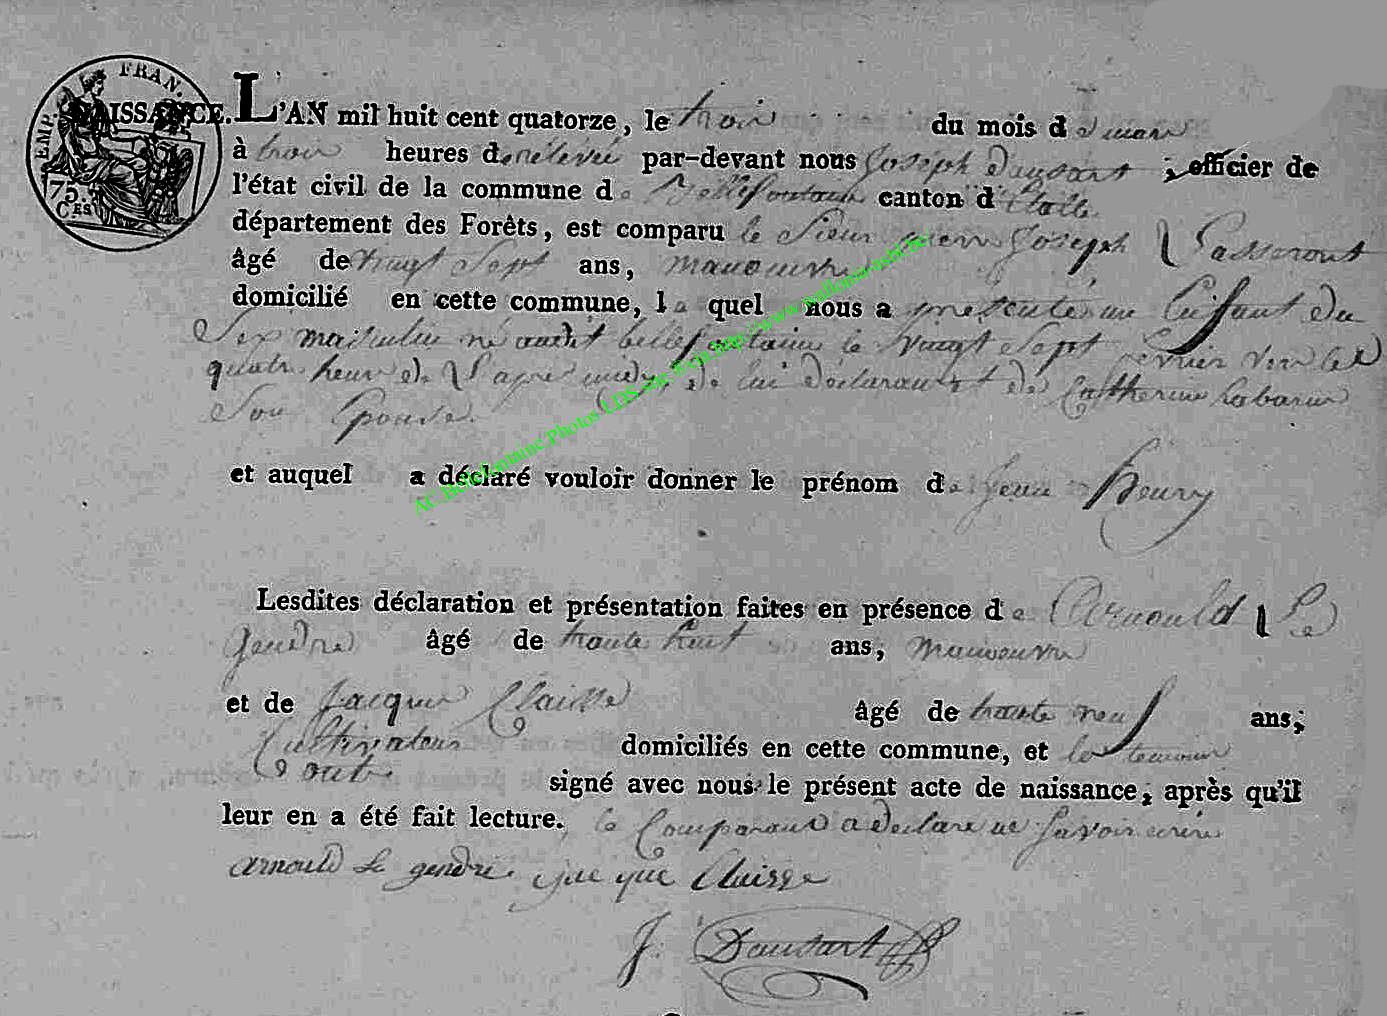 EMP. FRAN.
75. CES
NAISSANCE. L'AN mil huit cent quatorze, le trois du mois de mars
à trois heures de relevée par-devant nous Joseph Dausart, officier de
l'état civil de la commune de Bellefontaine canton d'Etalle
département des Forêts, est comparu le Sieur Joseph Lasseront
âgé de vingt Sept ans, manouvre
domicilié en cette commune, le quel nous a présenté un Enfant du
Sex masculin né audit bellefontaine le vingt Sept
quatre heur de L'apres midy de lui déclarant et de Catherine
Son Epouse.
et auquel a déclaré vouloir donner le prénom de Jean Henry
Lesdites déclaration et présentation faites en présence de Arnould Le
Gendre âgé de trante huit ans, manouvre
et de Jacque Claisse âgé de trante neuf ans,
Cultivateur domiciliés en cette commune, et les temoins
ont signé avec nous le présent acte de naissance, après qu'il
leur en a été fait lecture. le Comparant a declaré ne Savoir ecrire
arnould Le gendre. Claisse
J. Dausart
AC Bellefontaine Photos LDS sur http://www.wallonia-asbl.be/